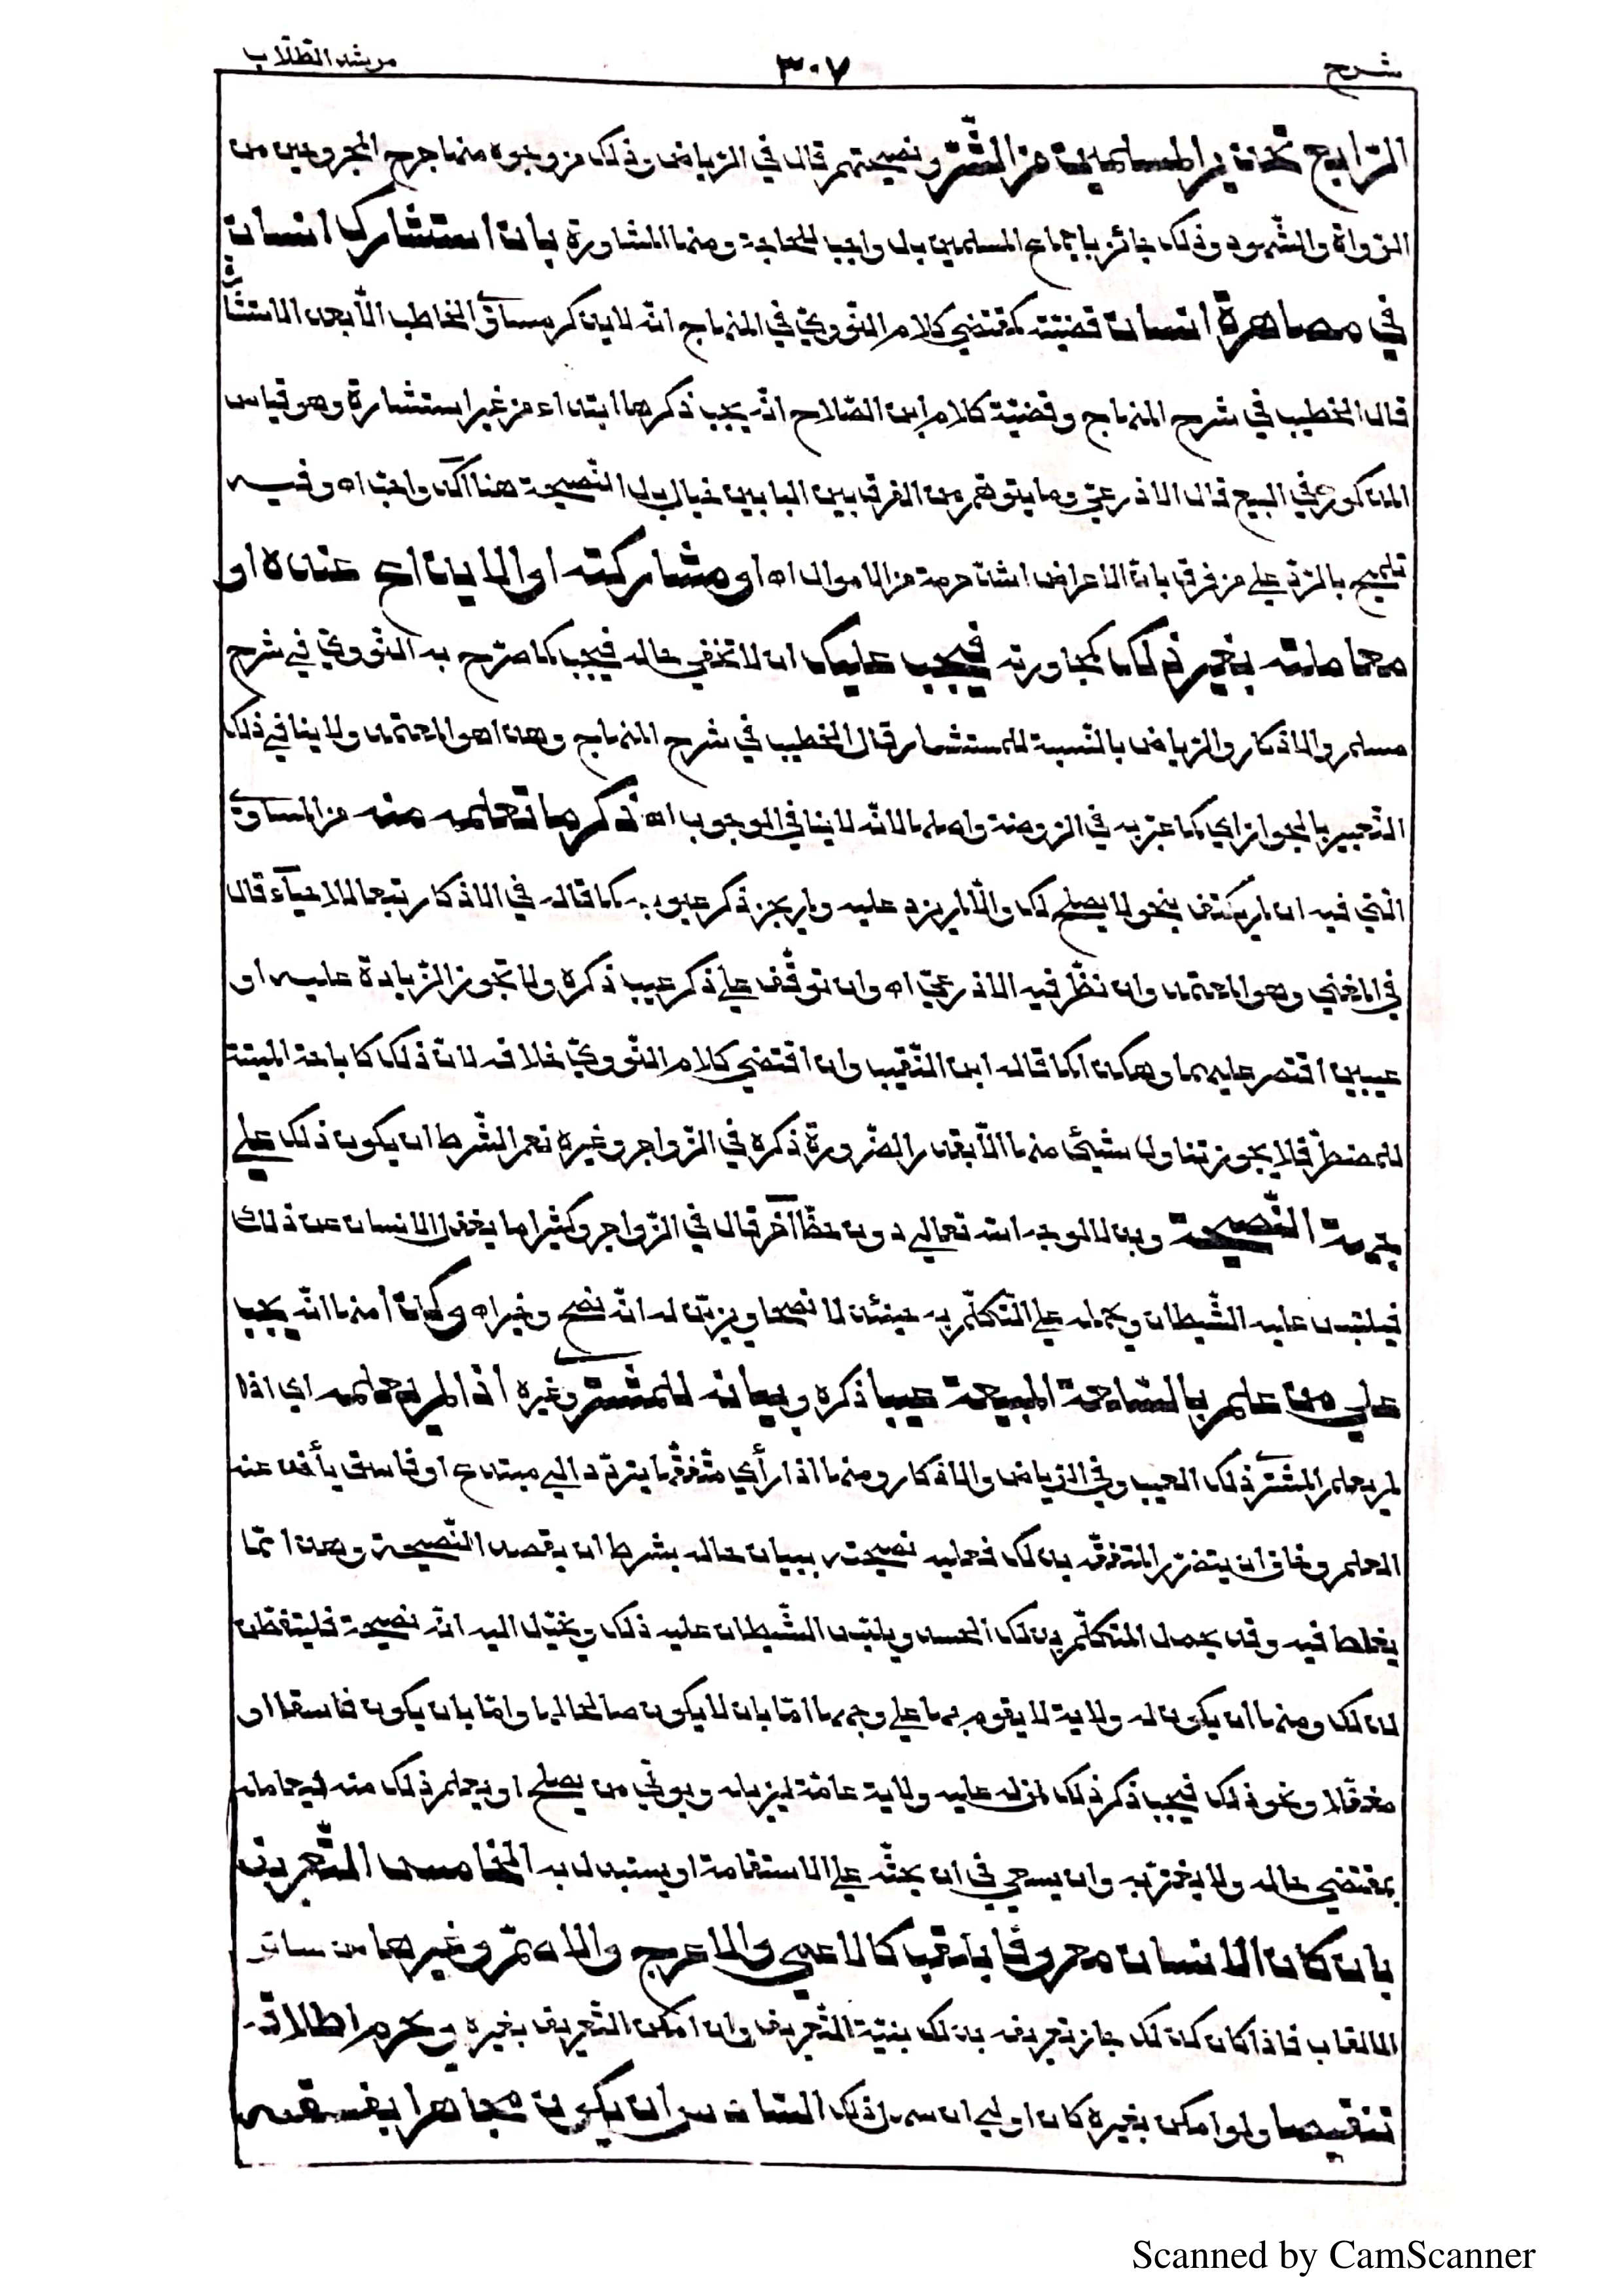 شرح ٣٠٧ مرشد الطلاب
الرّابع تحذير المسلمين من الشّرّ ونصيحتهم قال في الرياض وذلك من وجوه منها جرح المجروحين من
الرواة والشّهود وذلك جائز باجماع المسلمين بل واجب للحاجة ومنها المشاورة بان استشارك انسان
في مصاهرة انسان قضيّته كمقتضى كلام النّوويّ في المنهاج انّه لا يذكر مساوئ الخاطب الّا بعد الاستشارة
قال الخطيب في شرح المنهاج وقضيّة كلام ابن الصّلاح انّه يجب ذكرها ابتداء من غير استشارة وهو قياس
المذكور في البيع قال الاذرعيّ وما يتوهّم من الفرق بين البابين خيال بل النّصيحة هنا آكد واجبا اه وفيه
تلميح بالرّدّ على من فرق بانّ الاعراض اشدّ حرمة من الاموال اه او مشاركته او الايداع عنده او
معاملته بغير ذلك كمجاورته فيجب عليك ان لا تخفي حاله فيجب كما صرّح به النّوويّ في شرح
مسلم والاذكار والرياض بالنّسبة للمستشار قال الخطيب في شرح المنهاج وهذا هو المعتمد ولا ينافي ذلك
التّعبير بالجواز اي كما عبّر به في الروضة واصلها لانّه لا ينافي الوجوب اه ذكر ما تعلمه منه من المساوئ
الّتي فيه ان لم يكتف بنحو لا يصلح لك والّا لم يزد عليه ولم يجز ذكر عيوبه كما قاله في الاذكار تبعا للاحيآء قال
في المغني وهو المعتمد وان نظّر فيه الاذرعيّ اه وان توقّف على ذكر عيب ذكره ولا تجوز الزّيادة عليه او
عيبين اقتصر عليهما وهكذا كما قاله ابن النّقيب وان اقتضى كلام النّوويّ خلافه لانّ ذلك كاباحة الميتة
للمضطرّ فلا يجوز تناول شيئ منها الّا بقدر الضّرورة ذكره في الزّواجر وغيره نعم الشّرط ان يكون ذلك على
جهة النّصيحة وبذلا لوجه الله تعالى دون حظّ آخر قال في الزّواجر وكثيرا ما يغفل الانسان عن ذلك
فيلبّس عليه الشّيطان ويحمله على التّكلّم به حينئذ لا نصحا ويزيّن له انّه نصح وخير اه وكذا منها انّه يجب
على من علم بالسّلعة المبيعة عيبا ذكره وبيانه للمشتر وغيره اذا لم يعلمه اي اذا
لم يعلم المشتر ذلك العيب وفي الرياض والاذكار ومنها اذا رأى متفقّها يتردّد الى مبتدع او فاسق يأخذ عنه
العلم وخاف ان يتضرّر المتفقّه بذلك فعليه نصيحته ببيان حاله بشرط ان يقصد النّصيحة وهذا ممّا
يغلط فيه وقد يحمل المتكلّم بذلك الحسد ويلبّس الشّيطان عليه ذلك ويخيّل اليه انّه نصيحة فليتفطّن
لذلك ومنها ان يكون له ولاية لا يقوم بها على وجهها امّا بان لا يكون صالحا لها وامّا بان يكون فاسقا او
مغفّلا ونحو ذلك فيجب ذكر ذلك لمن له عليه ولاية عامّة ليزيله ويولّي من يصلح او يعلم ذلك منه ليعامله
بمقتضى حاله ولا يغترّ به وان يسعى في ان يحثّه على الاستقامة او يستبدل به الخامس التّعريف
بان كان الانسان معروفا بلقب كالاعمى والاعرج والاصمّ وغيرها من سائر
الالقاب فاذا كان كذلك جاز تعريفه بذلك بنيّة التّعريف وان امكن التّعريف بغيره ويحرم اطلاقه
تنقيصا ولو امكن بغيره كان اولى ان سهل ذلك السّادس ان يكون مجاهرا بفسقه
Scanned by CamScanner